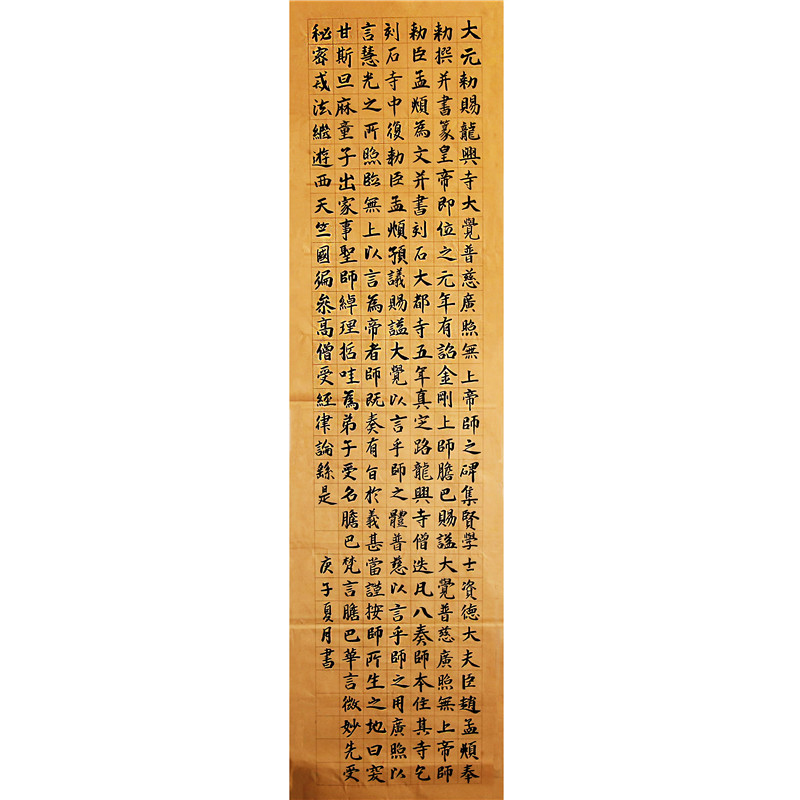 大元勅賜龍興寺大覺普慈廣照無上帝師之碑集賢學士資德大夫臣趙孟頫奉
勅撰并書篆皇帝即位之元年有詔金剛上師膽巴賜謚大覺普慈廣照無上帝師
勅臣孟頫為文并書刻石大都寺五年真定路龍興寺僧迭凡八奏師本住其寺乞
刻石寺中復勅臣孟頫預議賜謚大覺以言乎師之體普慈以言乎師之用廣照以
言慧光之所照臨無上以言為帝者師既奏有旨於義甚當謹按師所生之地曰突
甘斯旦麻童子出家事聖師綽理哲哇為弟子受名膽巴梵言膽巴華言微妙先受
秘密戒法繼遊西天竺國徧參高僧受經律論繇是
庚子夏月書